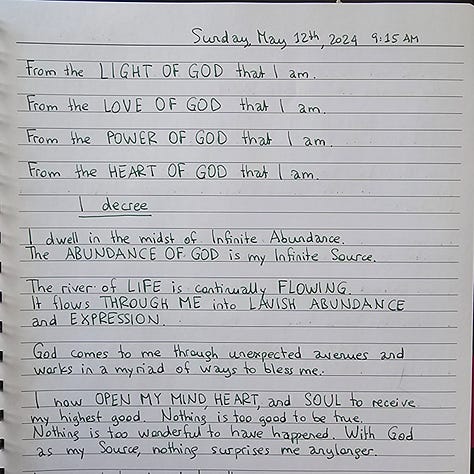 Sunday, May 12th, 2024 9:15 AM
From the LIGHT OF GOD that I am.
From the LOVE OF GOD that I am.
From the POWER OF GOD that I am.
From the HEART OF GOD that I am.
I decree
I dwell in the midst of Infinite Abundance.
The ABUNDANCE OF GOD is my Infinite Source.
The river of LIFE is continually FLOWING.
It flows THROUGH ME into LAVISH ABUNDANCE
and EXPRESSION.
God comes to me through unexpected avenues and
works in a myriad of ways to bless me.
I now OPEN MY MIND HEART, and SOUL to receive
my highest good. Nothing is too good to be true.
Nothing is too wonderful to have happened. With God
as my Source, nothing surprises me anylonger.